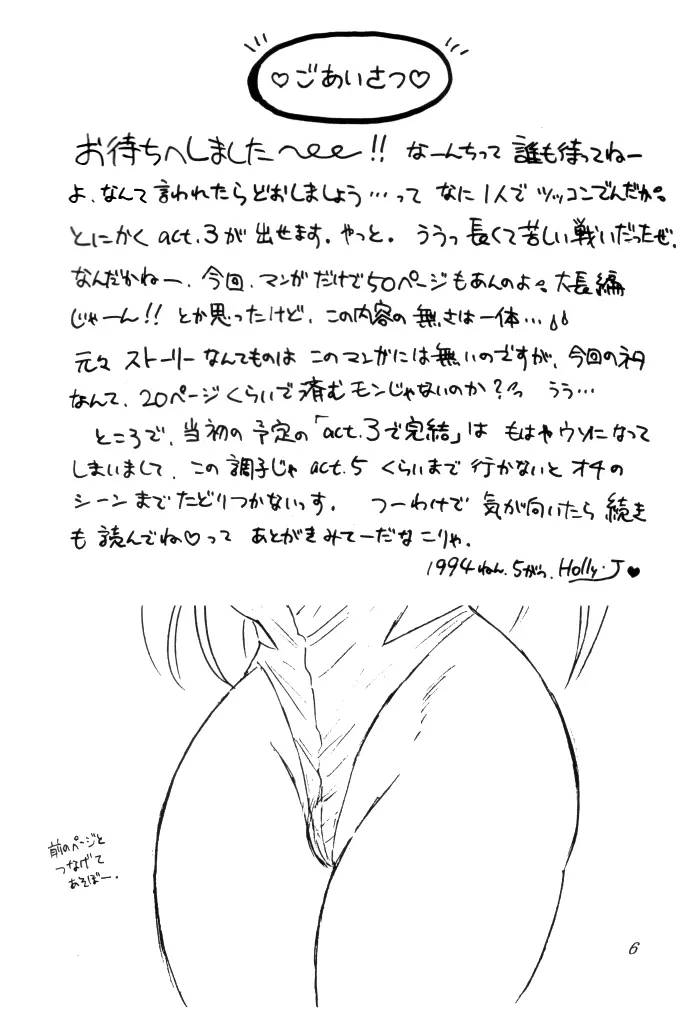 ♡ごあいさつ♡
お待ちへしました〜!! なーんちって 誰も待ってねー
よ、なんて言われたらどおしましょう…って なに1人で ツッコンでんだか。
とにかく act.3が 出せます。やっと。 ううっ 長くて苦しい戦いだったぜ。
なんだかねー、今回、マンガだけで50ページもあんのよ。大長編
じゃーん!! とか思ったけど、この内容の無さは一体…
元々 ストーリーなんてものは このマンガには無いのですが、今回のネタ
なんて、20ページくらいで済むモンじゃないのか?っ うう…
ところで、当初の予定の「act.3で完結」は もはやウソになって
しまいまして、この調子じゃ act.5 くらいまで 行かないと オチの
シーンまでたどりつかないっす。 つーわけで 気が向いたら 続き
も 読んでね♡って あとがきみてーだな こりゃ。
1994ねん.5がつ. Holly・J♥
前のページと
つなげて
あそぼー。
6